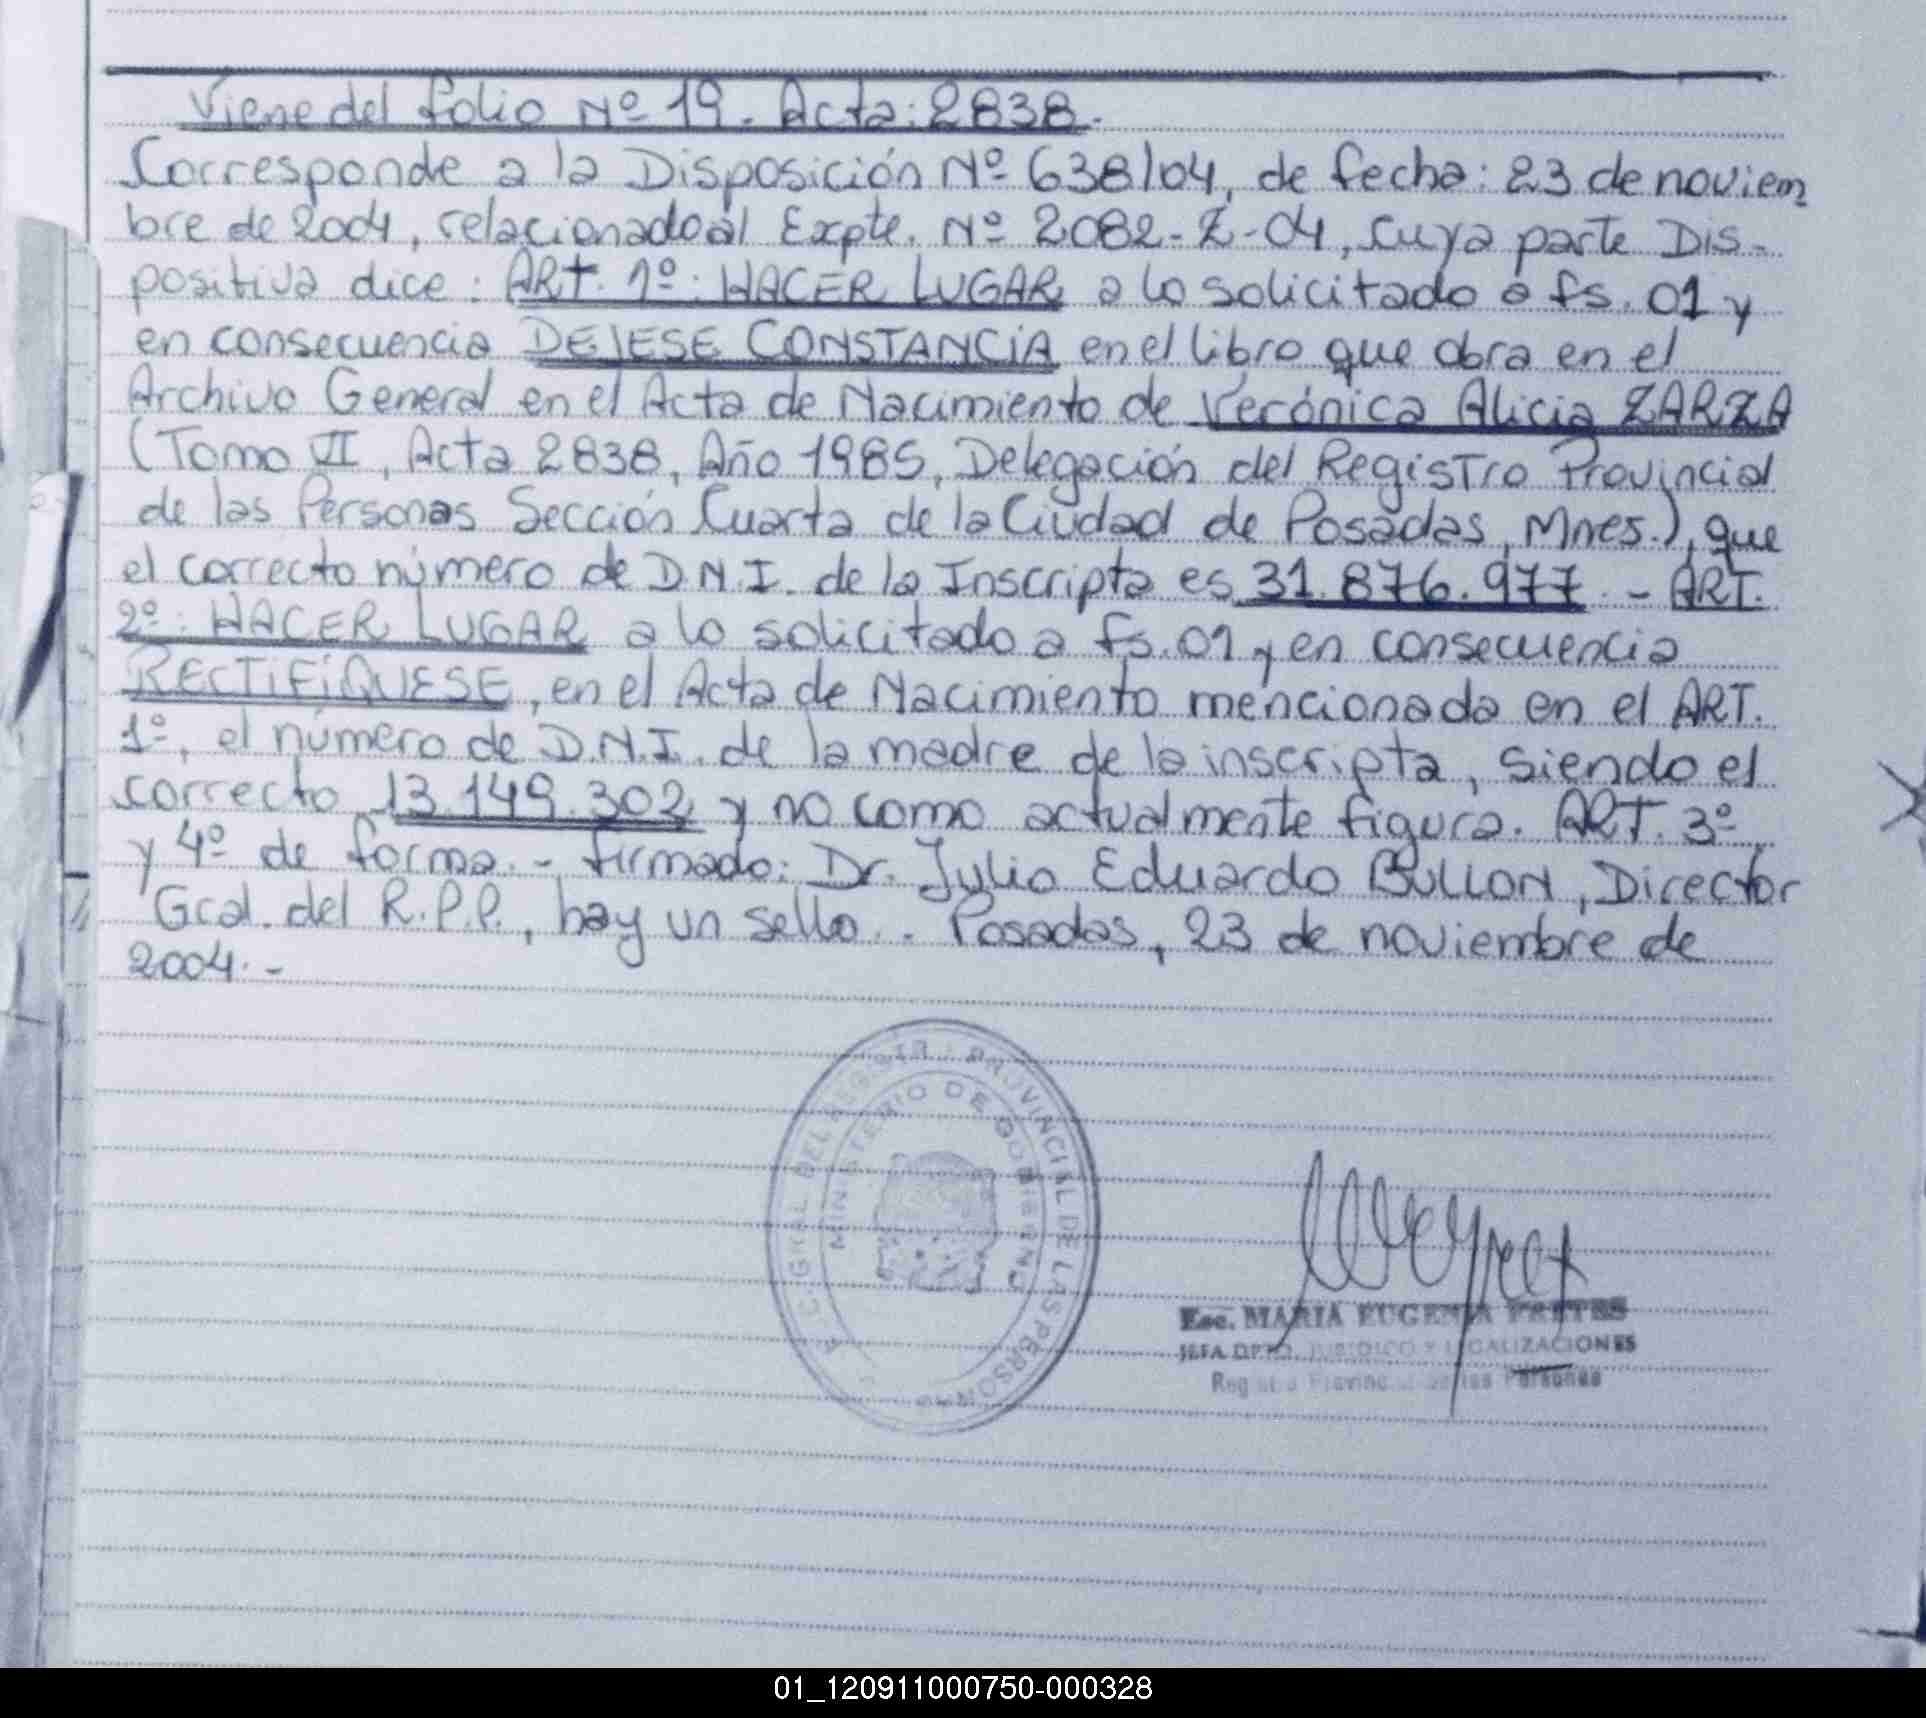 Viene del folio Nº 19. Acta: 2838.
Corresponde a la Disposición Nº 638/04, de fecha: 23 de noviem
bre de 2004, relacionado al Expte. Nº 2082-Z-04, cuya parte Dis-
positiva dice: ART. 1º: HACER LUGAR a lo solicitado a fs. 01 y
en consecuencia DEJESE CONSTANCIA en el libro que obra en el
Archivo General en el Acta de Nacimiento de Verónica Alicia ZARZA
(Tomo VI, Acta 2838, Año 1985, Delegación del Registro Provincial
de las Personas Sección Cuarta de la Ciudad de Posadas, Mnes.), que
el correcto número de D.N.I. de la Inscripta es 31.876.977.- ART.
2º: HACER LUGAR a lo solicitado a fs. 01 y en consecuencia
RECTIFÍQUESE, en el Acta de Nacimiento mencionada en el ART.
1º, el número de D.N.I. de la madre de la inscripta, siendo el
correcto 13.149.302 y no como actualmente figura. ART. 3º
y 4º de forma.- firmado: Dr. Julio Eduardo BULLON, Director
Gral. del R.P.P., hay un sello.. Posadas, 23 de noviembre de
2004.-
GRAL DEL REGISTR PROVINCIAL DE LAS PERSONAS
MINISTERIO DE GOBIERNO
Esc. MARIA EUGENIA FRETES
JEFA DPTO. JURIDICO Y LEGALIZACIONES
Registro Provincial de las Personas
01_120911000750-000328